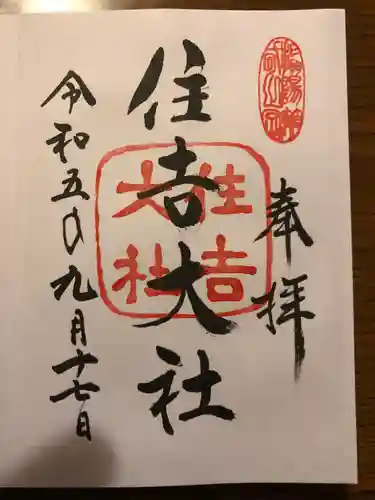 奉拝
住吉大社
住吉
大社
令和五年九月十七日